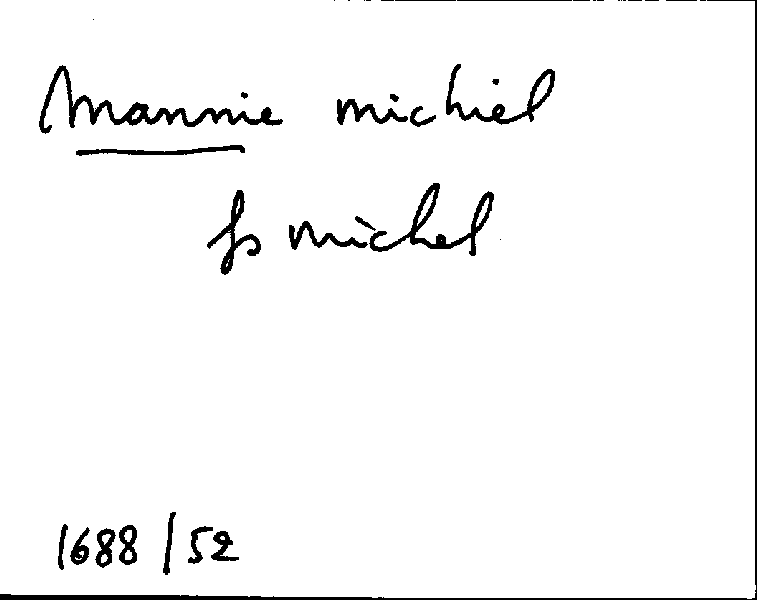 Mannie michiel
fs michel
1688/52